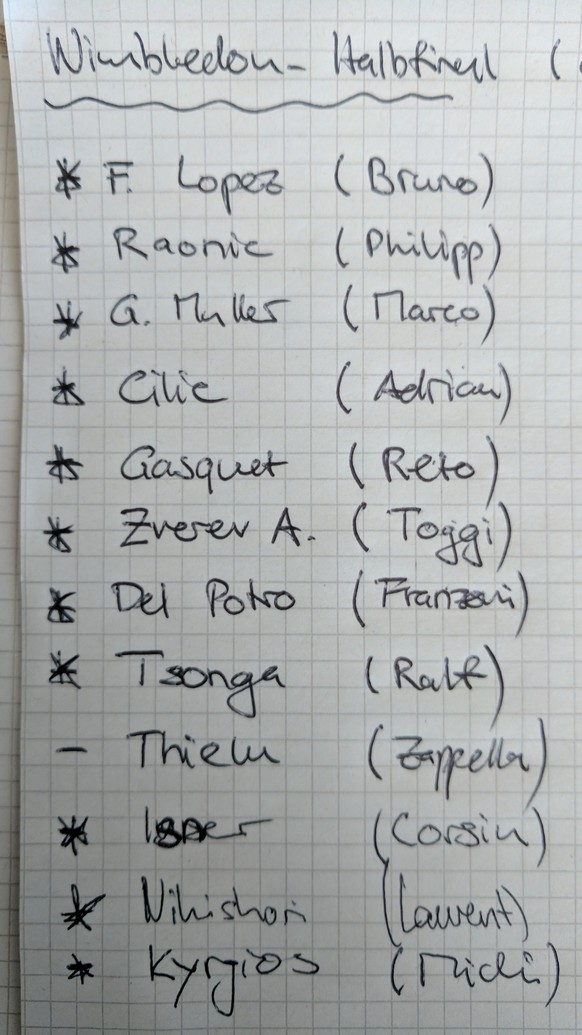 Wimbledon - Halbfinal (
* F. Lopez (Bruno)
* Raonic (Philipp)
* G. Muller (Marco)
* Cilic (Adrian)
* Gasquet (Reto)
* Zverev A. (Toggi)
* Del Potro (Franzoni)
* Tsonga (Ralf)
- Thiem (Zappella)
* Isner (Corsin)
* Nikishori (Laurent)
* Kyrgios (Michi)